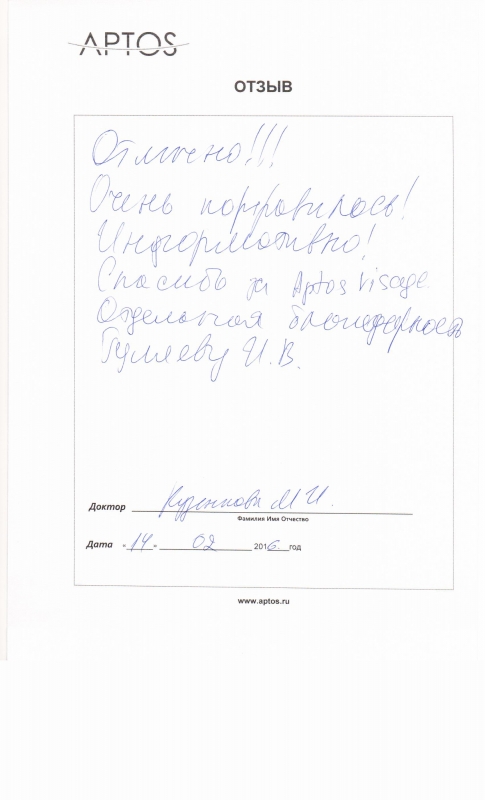 APTOS
ОТЗЫВ
Отлично!!!
Очень понравилось!
Информативно!
Спасибо за Aptos Visage.
Отдельная благодарность
Гуляеву И.В.
Доктор Кузенкова М И.
Фамилия Имя Отчество
Дата «14» 02 2016 год
www.aptos.ru